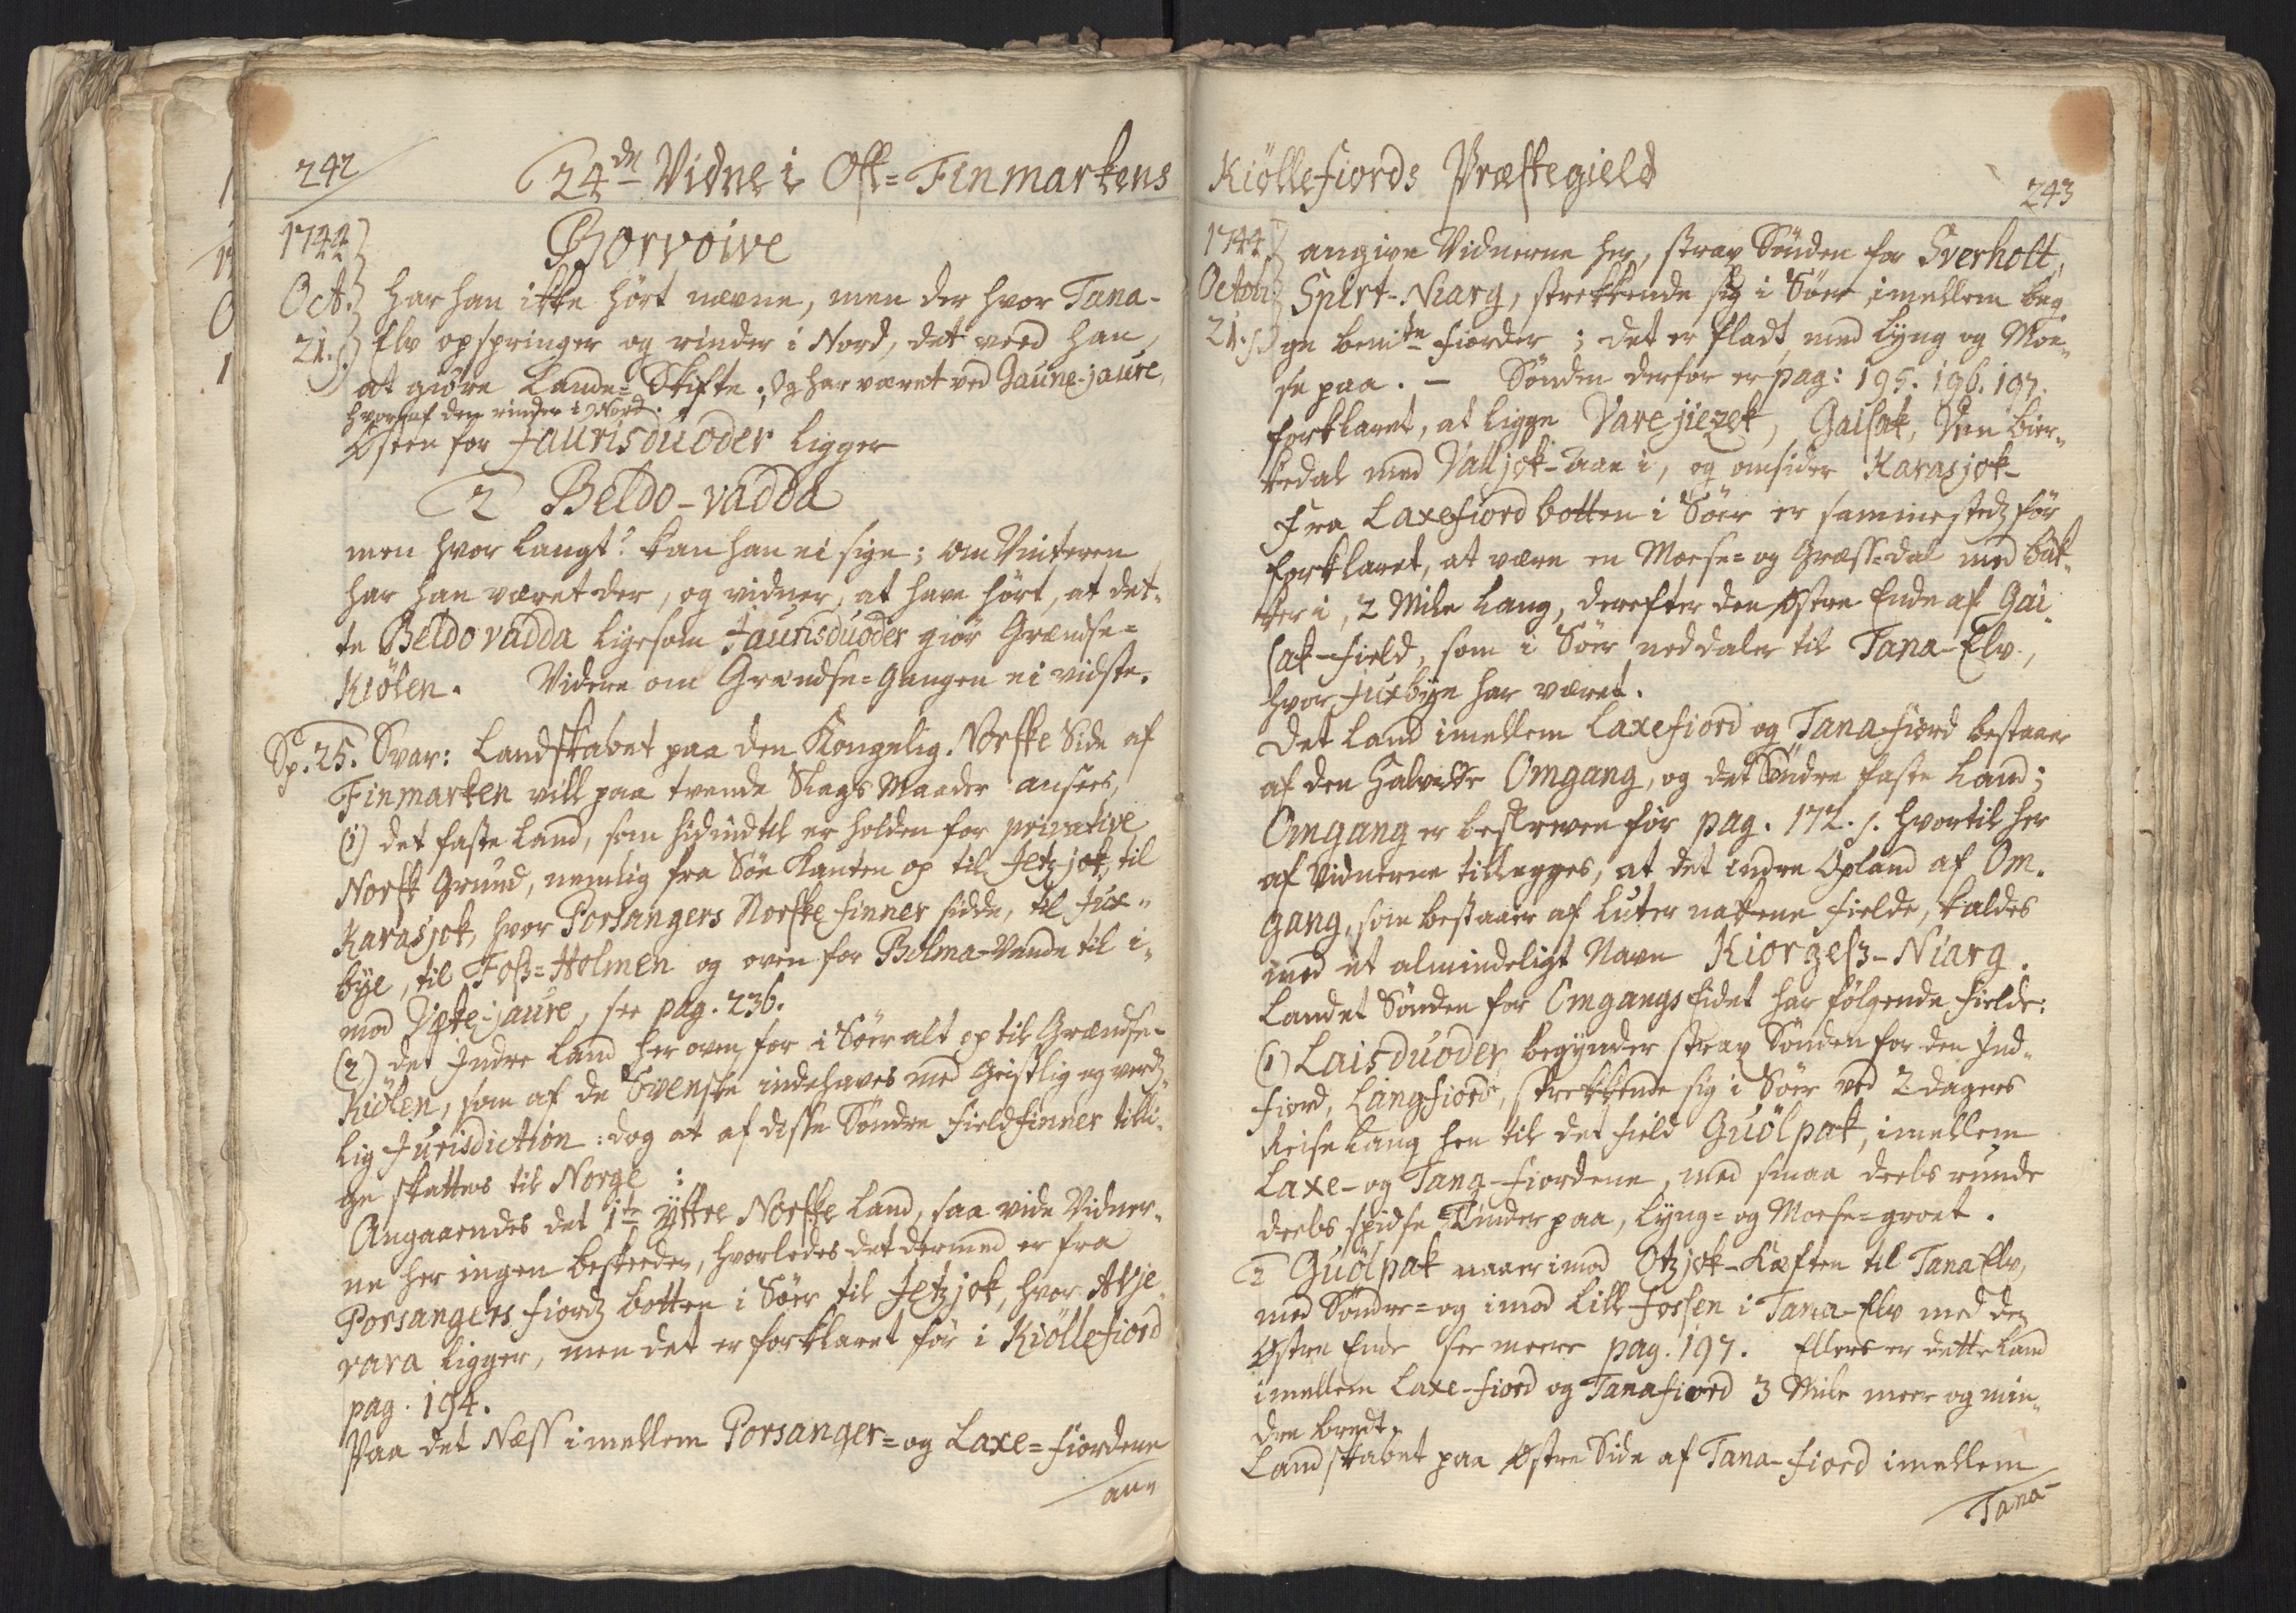 242
24de Vidne i Ost=Finmarkens
1744
Oct.
21.
Borvoive
har han ikke hört nævne, men der hvor Tana-
Elv opspringer og rinder i Nord, det veed han,
at giöre Lande=Skifte; og har været ved Jaune-jaure,
hvoraf den rinder i Nord.
Østen for Jaurisduoder ligger
2 Beldo-vadda
men hvor langt? kan han ei sige; om Vinteren
har han været der, og vidner, at have hört, at det-
te Beldovadda ligesom Jaurisduoder giör Grændse=
Kiölen. Videre om Grændse=Gangen ei vidste.
Sp. 25. Svar: Landskabet paa den Kongelig. Norske Side af
Finmarken vill paa tvende Slags Maader ansees,
(1) det faste Land, som hidindtil er holden for privative
Norsk Grund, nemlig fra Söe Kanten op til Jetzjok, til
Karasjok, hvor Porsangers Norske Finner sidde, til Jux-
bÿe, til Foss=Holmen og oven for Polma-Vande til i-
mod Pigte-jaure, see pag. 236.
(2) det Indre Land her oven for i Söer alt op til Grændse-
Kiölen, som af de Svenske indehaves med Geistlig og verds-
lig Jurisdiction: dog at af disse Söndre Fieldfinner tilli-
ge skattes til Norge:
Angaaendes det 1te ÿttre Norske Land, saa vide Vidner-
ne her ingen beskeeden, hvorledes det dermed er fra
Porsangers Fiords botten i Söer til Jetzjok, hvor Akje-
vara ligger, men det er forklaret för i Kiöllefiord
pag. 194.
Paa det Næss imellem Porsanger= og Laxe=fiordene
an-
Kiöllefiords Præstegield
243
1744
Octobr
21.
angive Vidnerne her, strax Sönden for Sverholt,
Spirt-Niarg, strekkende sig i Söer imellem beg-
ge bemte fiorder; det er fladt med Lÿng og Moe-
se paa. - Sönden derfor er pag: 195. 196. 197.
forklaret, at ligge Varejiezek, Gaisak, Een bier-
kedal med Valljok-Aae i, og omsider Karasjok-
Fra Laxefiord botten i Söer er sammesteds för
forklaret, at være en Moese= og Græss=dal med bak-
ker i, 2 Mile lang, derefter den Østre Ende af Gai-
sak-field, som i Söer neddaler til Tana-Elv,
hvor Juxbÿe har været.
Det Land imellem Laxefiord og Tanafiord bestaaer
af den Halvöe Omgang, og det Söndre faste Land;
Omgang er beskreven för pag. 172. s. hvortil her
af Vidnerne tillegges, at det indre Opland af Om-
gang, som bestaaer af luter nakene fielde, kaldes
med et almindeligt Navn Kiorgess-Niarg.
Landet Sönden for Omgangs Eidet har fölgende Fielde:
(1) Laisduoder begÿnder strax Sönden for den Ind-
fiord, Langfiord, strekkende sig i Söer ved 2 dagers
Reise lang hen til det field Guölpak, imellem
Laxe- og Tana-fiordene, med smaa deels runde
deels spidse Tinder paa, Lÿng= og Moese=groet.
2 Guölpak naaer imod Otzjok-Kæften til Tana Elv,
med Söndre= og imod Lill-Fossen i Tana-Elv med den
Østre Ende see meere pag. 197. Ellers er dette Land
imellem Laxe-fiord og Tanafiord 3 Mile meer og min-
dre bredt.
Landskabet paa Østre Side af Tana-fiord imellem
Tana-